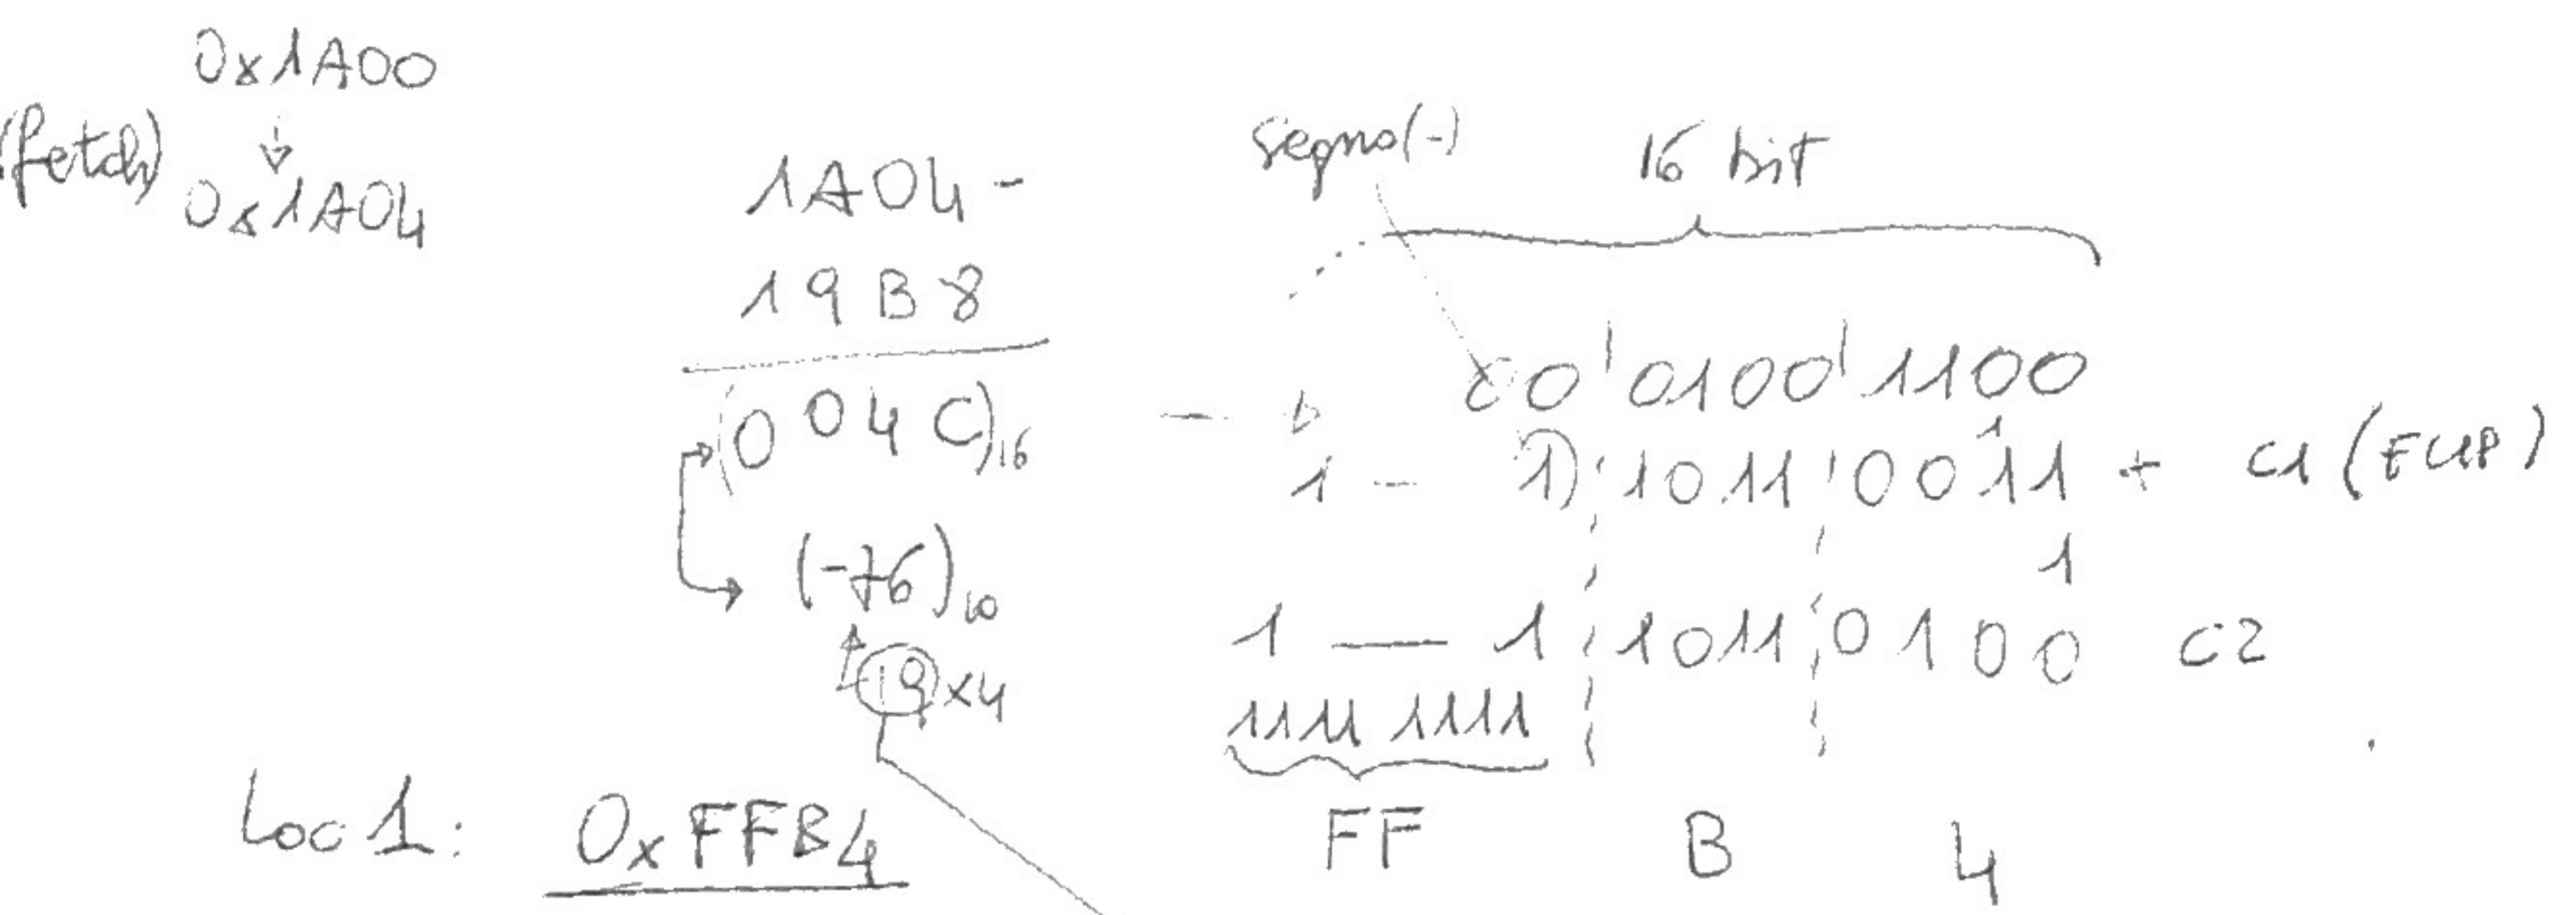 0x1A00
(fetch)
0x1A04
1A04 -
19B8
(004C)16
(-76)10
19 x4
Loc1: 0xFFB4
segno(-) 16 bit
00 0100 1100
1
1 - 1) 1011 0011 + C1 (FLIP)
1
1 — 1 1011 0100 C2
1111 1111
FF B 4